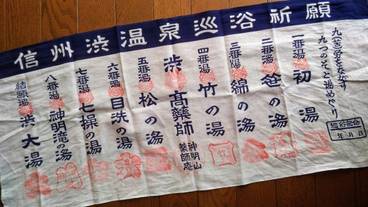 信州渋温泉巡浴祈願
九(苦)労を流す
九つのそと湯めぐり
一番湯 初湯
二番湯 笹の湯
三番湯 綿の湯
四番湯 竹の湯
神明山
薬師庵
渋 高薬師
五番湯 松の湯
六番湯 目洗の湯
七番湯 七操の湯
八番湯 神明滝の湯
結願湯 渋大湯
年 月 日